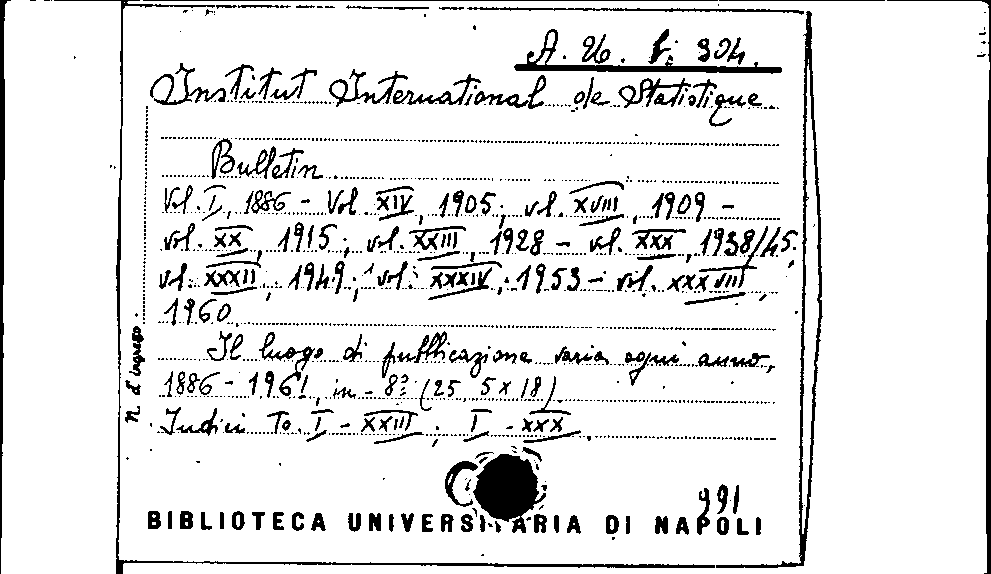 A. Z6. f: 304.
Institut International de Statistique.
Bulletin.
Vol. I, 1886 - Vol XIV, 1905; vol. XVIII, 1909 -
vol. XX, 1915; vol. XXIII, 1928 - vol. XXX, 1938/45;
vol. XXXII, 1949; vol. XXXIV, 1953 - vol. XXXVIII,
1960.
Il luogo di pubblicazione varia ogni anno,
1886 - 1961, in - 8º (25, 5 x 18).
Indici To. I - XXIII; I - XXX.
N. d'ingresso.
991
BIBLIOTECA UNIVERSITARIA DI NAPOLI